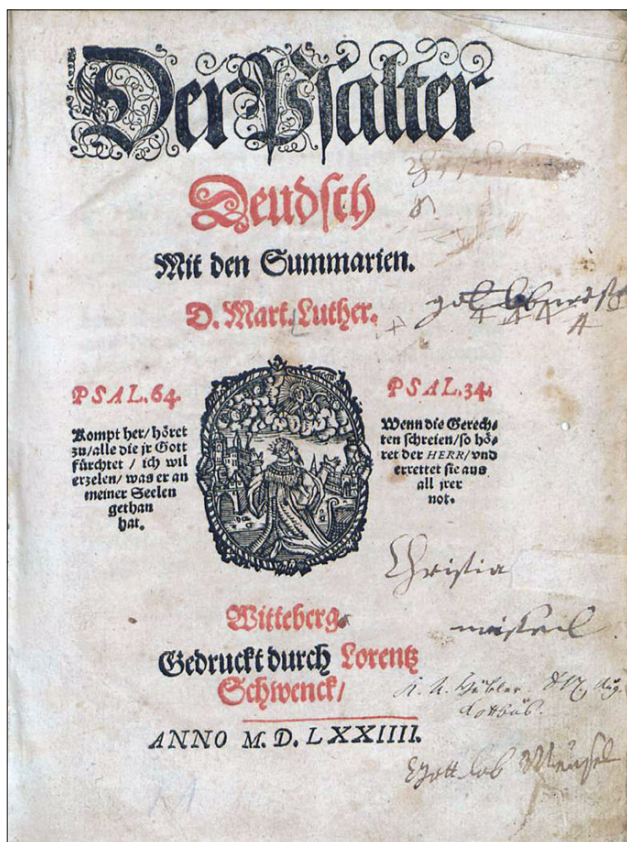 Der Psalter
Deudsch
Mit den Summarien.
D. Mart. Luther.
PSAL. 64.
Kompt her/ höret
zu/ alle die jr Gott
fürchtet / ich wil
erzelen/ was er an
meiner Seelen
gethan
hat.
PSAL. 34.
Wenn die Gerech-
ten schreien/ so hö-
ret der HERR/ vnd
errettet sie aus
all jrer
not.
Witteberg
Gedruckt durch Lorentz
Schwenck/
ANNO M. D. LXXIIII.
Christia